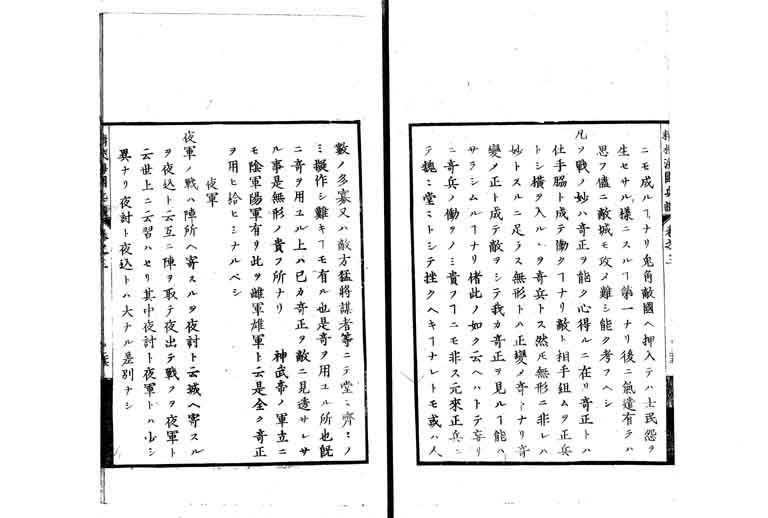 ニモ成ルヿナリ兎角敵國ヘ押入テハ士民怨ヲ
生セサル樣ニスルヿ第一ナリ後ニ氣遣有ラハ
思フ儘ニ敵城モ攻メ難シ能ク考フヘシ
凡ソ戰ノ妙ハ奇正ヲ能ク心得ルニ在リ奇正トハ
仕手脇ト成テ働クヿナリ敵ト相手組ムヲ正兵
トシ橫ヲ入ルヽヲ奇兵トス然𪜈無形ニ非レハ
妙トスルニ足ラス無形トハ正變メ奇トナリ奇
變メ正ト成テ敵ヲシテ我カ奇正ヲ見ルヿ能ハ
サラシムルヿナリ偖此ノ如ク云ヘハトテ妄リ
ニ奇兵ノ働ヲノミ貴フヿニモ非ス元來正兵ニ
テ魏〻堂〻トシテ挫クヘキヿナレトモ或ハ人
數ノ多寡又ハ敵方猛將謀者等ニテ堂〻齊〻ノ
ミ擬作シ難キヿモ有ル也是奇ヲ用ユル所也旣
ニ奇ヲ用ユル上ハ已カ奇正ヲ敵ニ見透サレサ
ル事是無形ノ貴フ所ナリ 神武帝ノ軍立ニ
モ陰軍陽軍有リ此ヲ雌軍雄軍ト云是全ク奇正
ヲ用ヒ給ヒシナルベシ
夜軍
夜軍ノ戰ハ陣所ヘ寄スルヲ夜討ト云城ヘ寄スル
ヲ夜込ト云互ニ陣ヲ取テ夜出テ戰フヲ夜軍ト
云世上ニ云習ハセリ其中夜討ト夜軍トハ少シ
異ナリ夜討ト夜込トハ大ナル差別ナシ